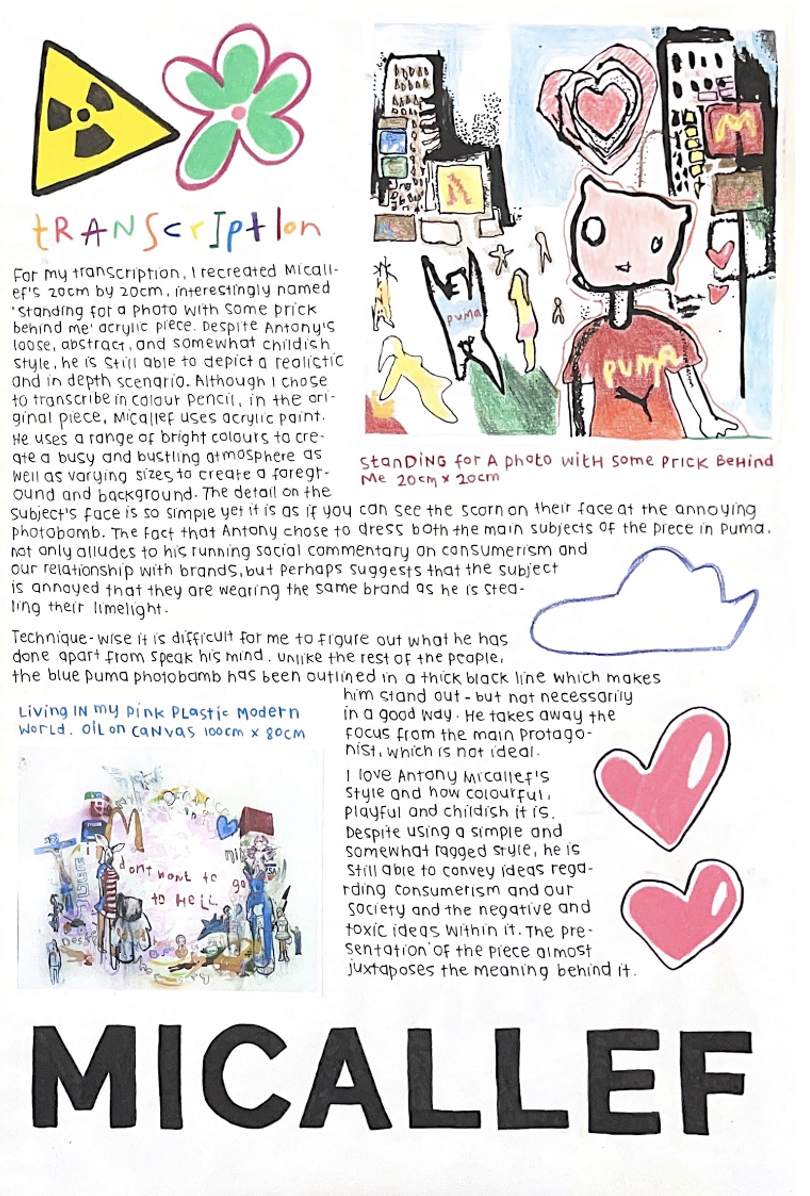 tRANScrIptIon
For my transcription, I recreated Micall-
ef's 20cm by 20cm, interestingly named
'Standing for a photo with some prick
behind me' acrylic piece. Despite Antony's
loose, abstract, and somewhat childish
style, he is still able to depict a realistic
and in depth scenario. Although I chose
to transcribe in colour pencil, in the ori-
ginal piece, Micallef uses acrylic paint.
He uses a range of bright colours to cre-
ate a busy and bustling atmosphere as
well as varying sizes to create a foregr-
ound and background. The detail on the
subject's face is so simple yet it is as if you can see the scorn on their face at the annoying
photobomb. The fact that Antony chose to dress both the main subjects of the piece in Puma,
not only alludes to his running social commentary on consumerism and
our relationship with brands, but perhaps suggests that the subject
is annoyed that they are wearing the same brand as he is stea-
ling their limelight.
Technique-wise it is difficult for me to figure out what he has
done apart from speak his mind. Unlike the rest of the people,
the blue puma photobomb has been outlined in a thick black line which makes
him stand out - but not necessarily
in a good way. He takes away the
focus from the main protago-
nist, which is not ideal.
I love Antony Micallef's
style and how colourful,
playful and childish it is.
Despite using a simple and
somewhat ragged style, he is
still able to convey ideas rega-
rding consumerism and our
society and the negative and
toxic ideas within it. The pre-
sentation of the piece almost
juxtaposes the meaning behind it.
M
M
puma
puma
Standing for a photo with some prick behind
me 20cm x 20cm
Living in my pink plastic modern
world. Oil on canvas 100cm x 80cm
M
dont want to
go
to Hell
MICALLEF